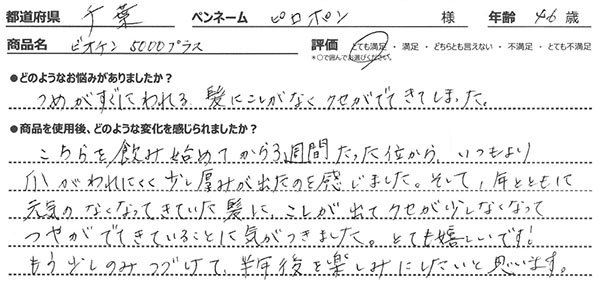 都道府県 千葉 ペンネーム ピロポン 様 年齢 46歳
商品名 ビオケン5000プラス 評価 とても満足 ・ 満足 ・ どちらとも言えない ・ 不満足 ・ とても不満足
*○で囲んでお選びください。
●どのようなお悩みがありましたか？
つめがすぐにわれる 髪にこしがなくクセがでてきてしまった。
●商品を使用後、どのような変化を感じられましたか？
こちらを飲み始めてから3週間たった位から、いつもより
爪がわれにくく少し厚みが出たのを感じました。そして、年とともに
元気のなくなってきていた髪に、こしが出てクセが少しなくなって
つやがでてきていることに気がつきました。とても嬉しいです!
もう少しのみつづけて、半年後を楽しみにしたいと思います。